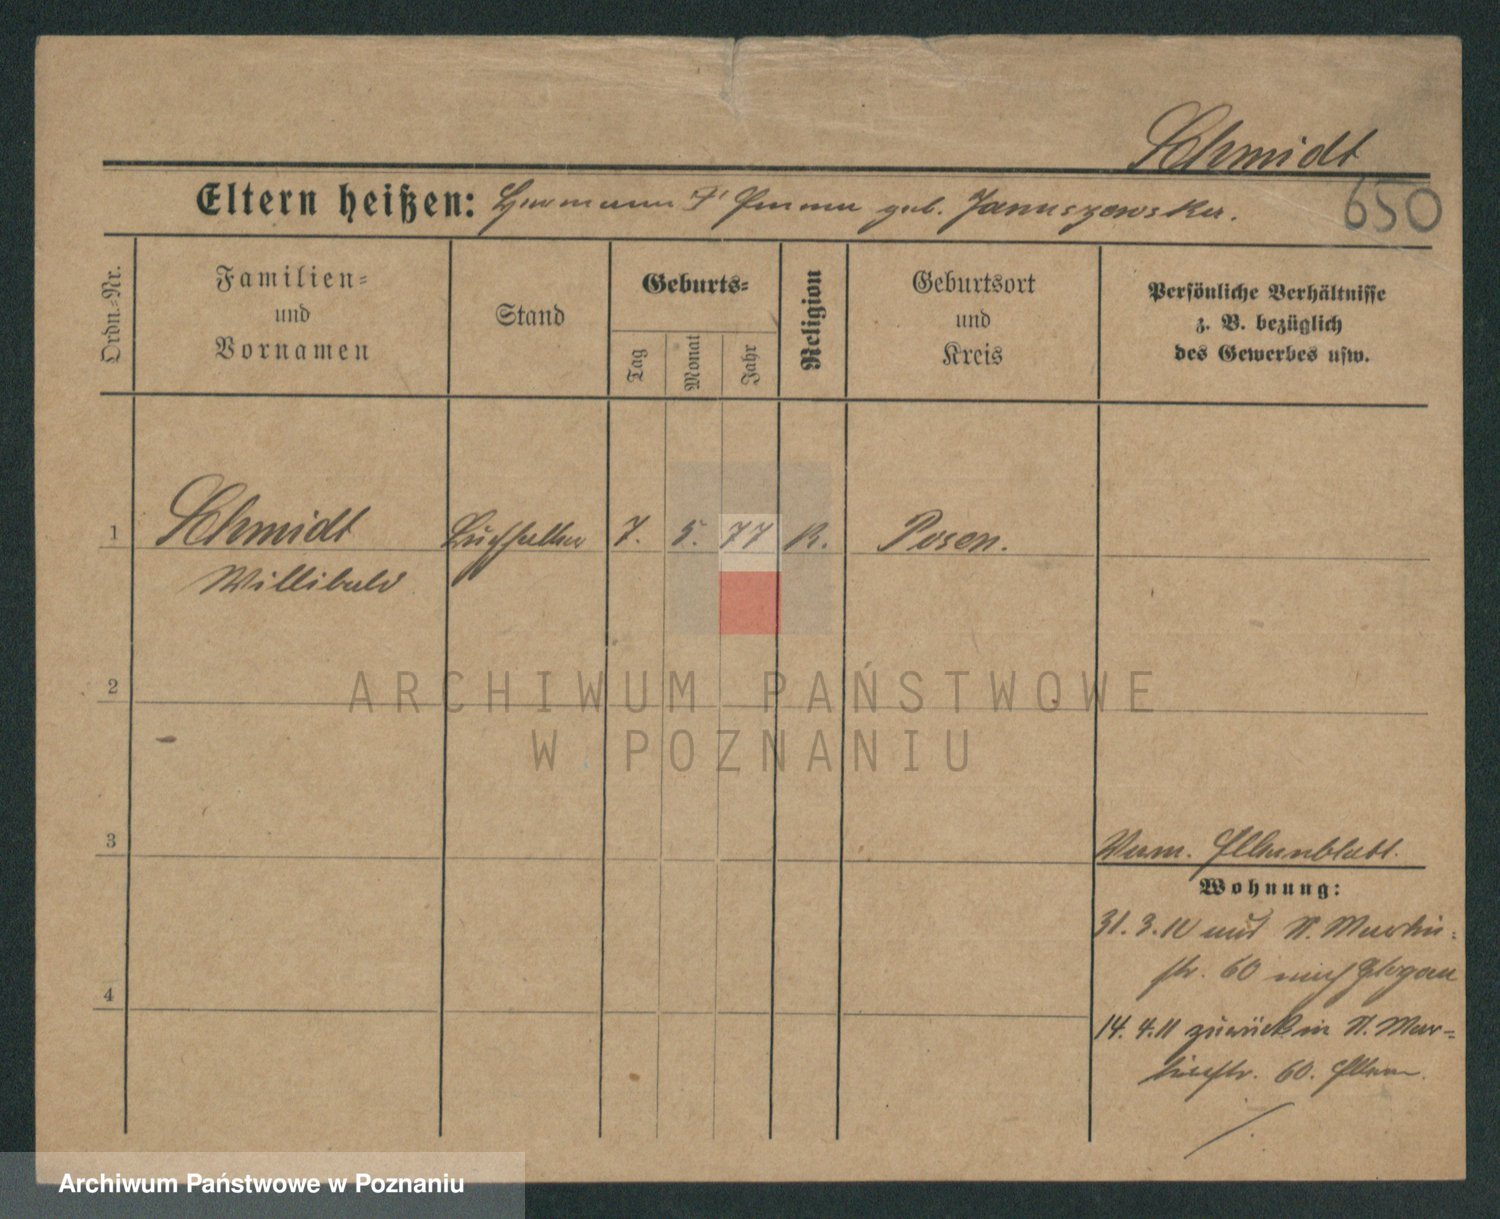 Schmidt
650
Eltern heißen: Hermann † Emma geb. Januszewska.
Ordn.-Nr.
Familien-
und
Vornamen
Stand
Geburts-
Tag
Monat
Jahr
Religion
Geburtsort
und
Kreis
Persönliche Verhältnisse
z. B. bezüglich
des Gewerbes usw.
1
Schmidt
Willibald
Buchhalter
7.
5.
77
K.
Posen.
2
ARCHIWUM PAŃSTWOWE
W POZNANIU
3
4
Elternblatt.
Wohnung:
31. 3. 11 aus St. Martin-
str. 60 nach Glogau
14. 4. 11 zurück in St. Mar-
tinstr. 60. Eltern.
Archiwum Państwowe w Poznaniu